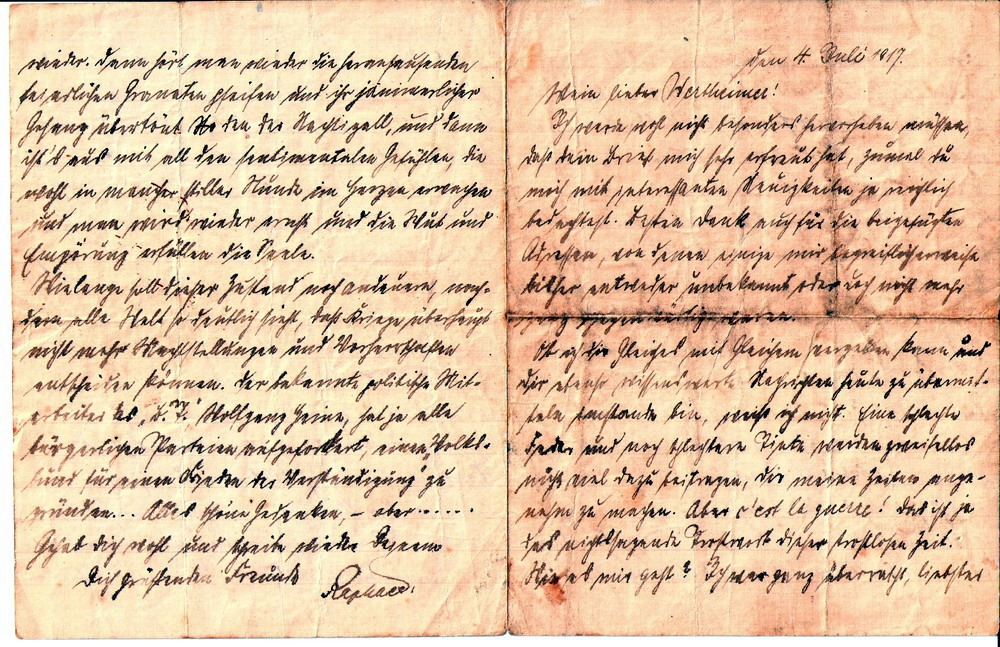 den 4. Juli 1917.
Mein lieber Wertheimer!
Ich werde wohl nicht besonders hervorheben müssen,
daß dein Brief mich sehr erfreut hat, zumal du
mich mit interessanten Neuigkeiten so reichlich
bedachtest. Besten Dank auch für die beigefügten
Adressen, von denen einige mir begreiflicherweise
bisher entweder unbekannt oder doch nicht mehr
ganz gegenwärtig waren.
Ob ich dir Gleiches mit Gleichem vergelten kann und
dir ebenso wissenswerte Nachrichten heute zu übermit-
teln imstande bin, weiß ich nicht. Eine schlechte
Feder und noch schlechtere Tinte werden zweifellos
nicht viel dazu beitragen, dir meine Zeilen ange-
nehm zu machen. Aber c'est la guerre! Das ist ja
das nichtssagende Trostwort dieser trostlosen Zeit.
Wie es mir geht? Ich war ganz überrascht, liebster
wieder. Dann hört man wieder die heransausenden
feindlichen Granaten pfeifen und ihr jämmerlicher
Gesang übertönt den der Nachtigall, und dann
ist's aus mit all den sentimentalen Gefühlen, die
wohl in mancher stiller Stunde im Herzen erwachen
und man wird wieder ernst und die Wut und
Empörung erfüllen die Seele.
Wie lange soll dieser Zustand noch andauern, nach-
dem alle Welt so deutlich sieht, daß Kriege überhaupt
nicht mehr Machtstellungen und Vorherrschaften
entscheiden können. Der bekannte politische Mit-
arbeiter des „B.T." Wolfgang Heine, hat ja alle
bürgerlichen Parteien aufgefordert, einen „Volks-
bund für einen Frieden der Verständigung" zu
gründen... Alles schöne Gedanken, – aber......
Gehab dich wohl und schreibe wieder Deinem
Dich grüßenden Freunde
Raphael.